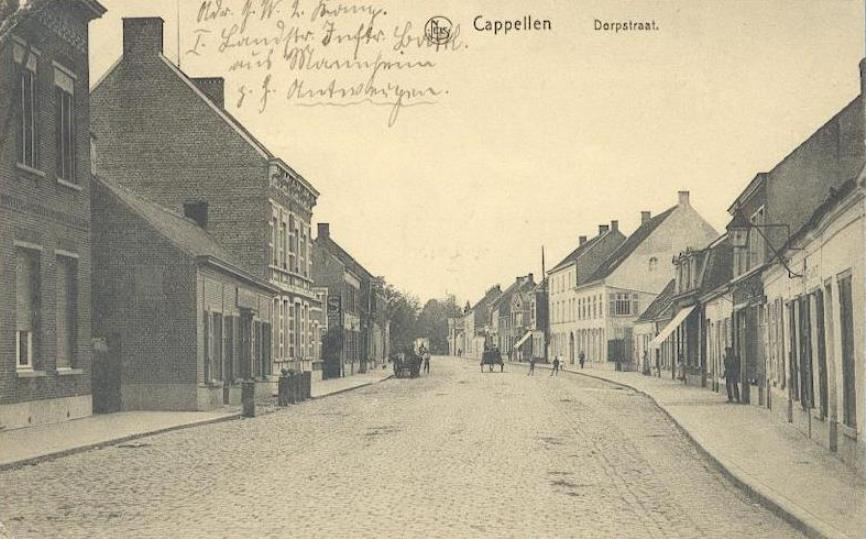 Adr. 2. Komp.
I. Landst. Inftr. Batl.
aus Mannheim
z. Z. Antwerpen.
Cappellen Dorpstraat.